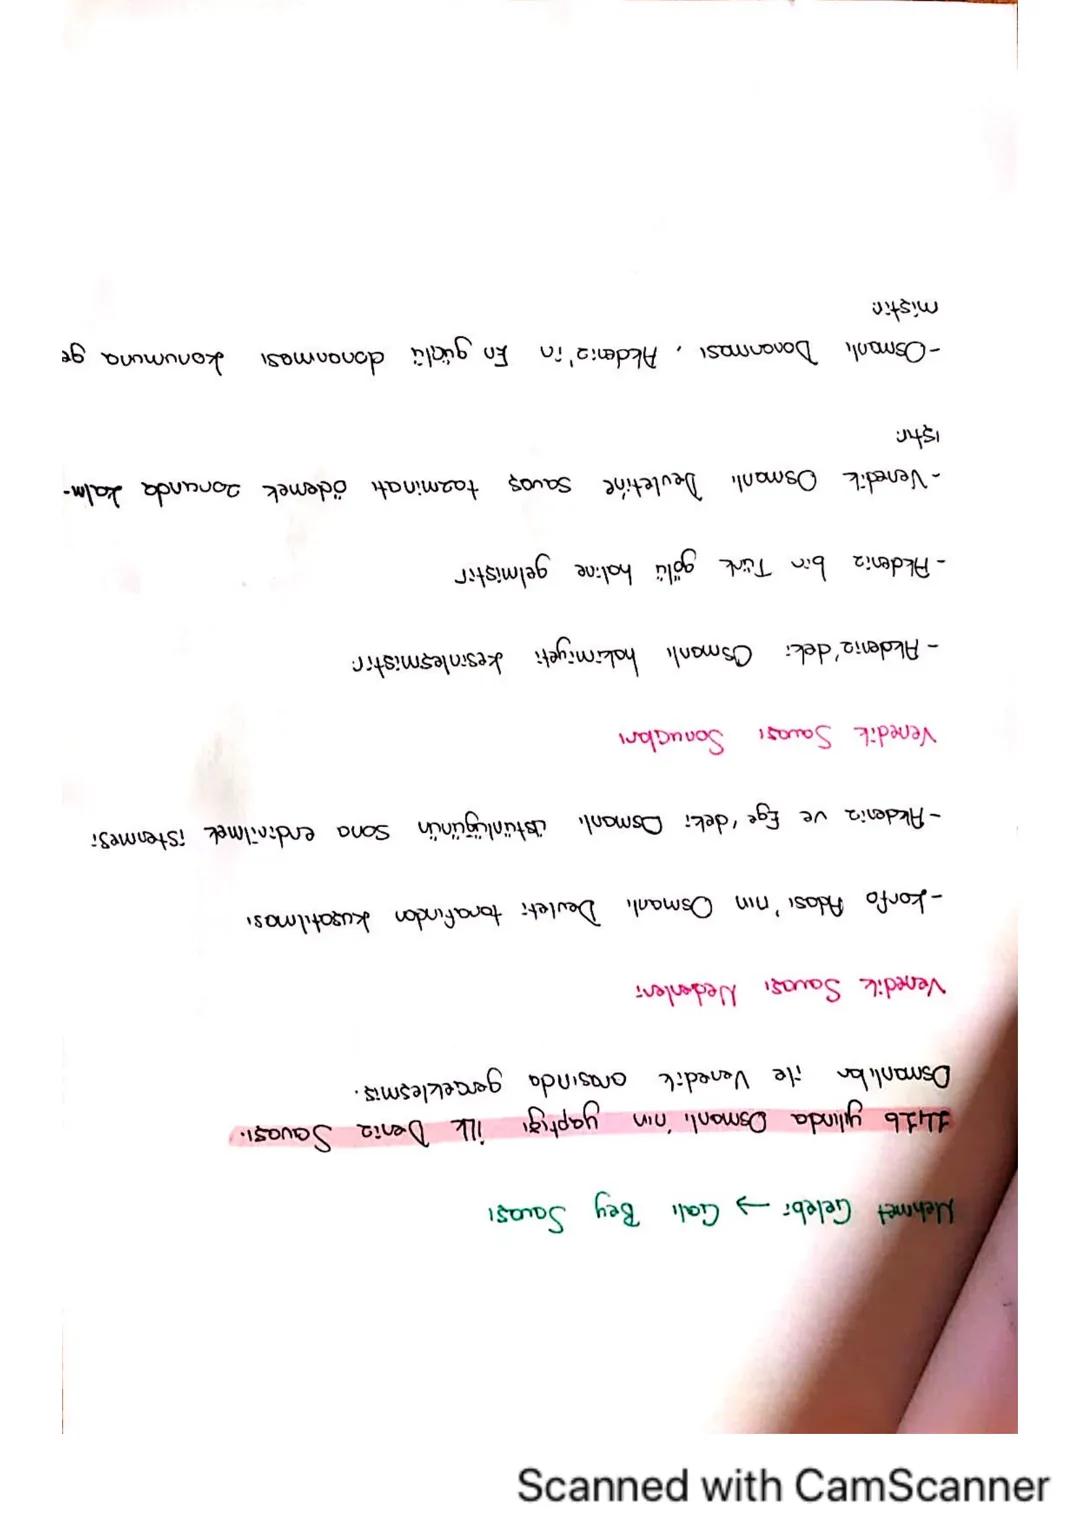 Mehmet Çelebi → Çalı Bey Savaşı
1416 yılında Osmanlı'nın yaptığı ilk Deniz Savaşı.
Osmanlılar ile Venedik arasında gerçekleşmiş.
Venedik Savaşı Nedenleri
-Korfo Adası'nın Osmanlı Devleti tarafından kuşatılması
-Akdeniz ve Ege'deki Osmanlı üstünlüğünün sona erdirilmek istenmesi
Venedik Savaşı Sonuçları
-Akdeniz'deki Osmanlı hakimiyeti kesinleşmiştir
-Akdeniz bir Türk gölü haline gelmiştir
-Venedik Osmanlı Devletine savaş tazminatı ödemek zorunda kalm-
ıştır.
-Osmanlı Donanması, Akdeniz'in En güçlü donanması konumuna ge
miştir.
Scanned with CamScanner